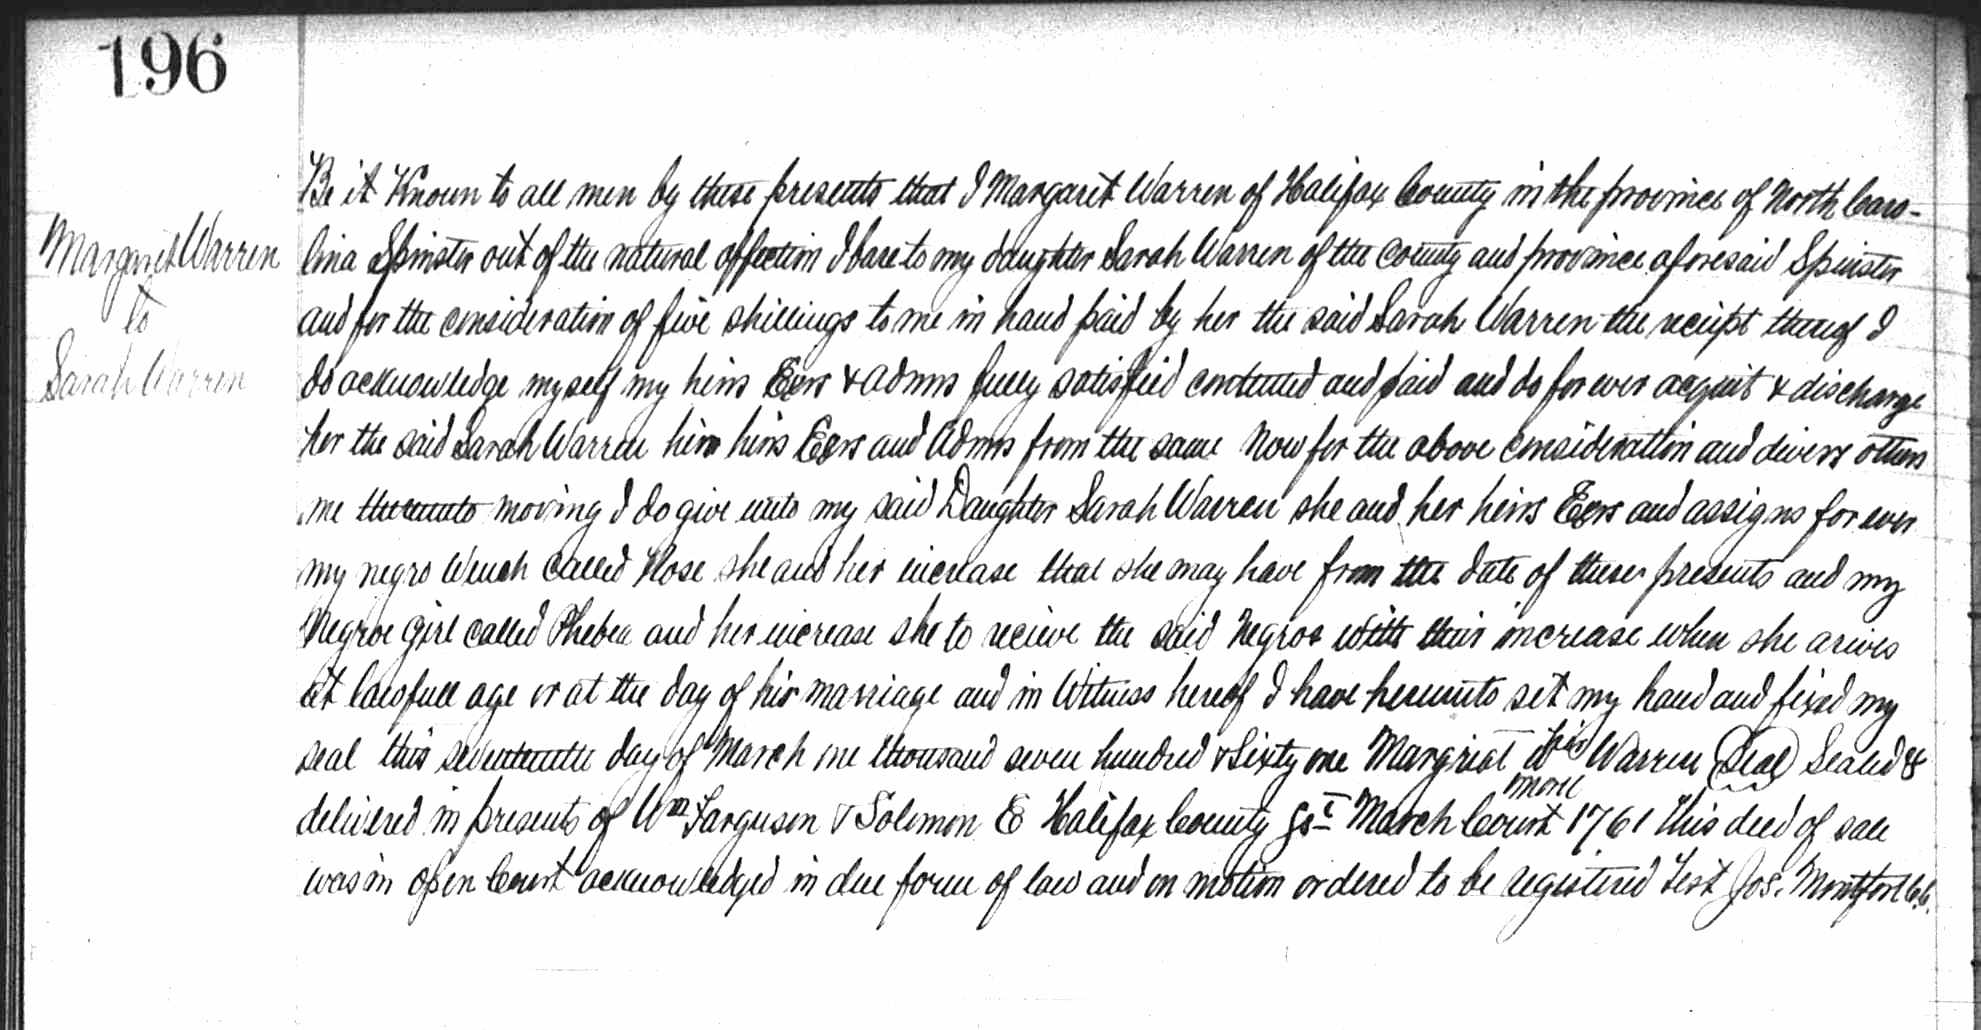 196
Margaret Warren
to
Sarah Warren
Be it Known to all men by these presents that I Margaret Warren of Halifax County in the province of North Caro-
lina Spinster out of the natural affection I bare to my daughter Sarah Warren of the County and province aforesaid Spinster
and for the consideration of five shillings to me in hand paid by her the said Sarah Warren the reciept thereof I
do acknowledge myself my heirs Exrs & admrs fully satisfied contented and paid and do for ever acquit & discharge
her the said Sarah Warren her heirs Exrs and Admrs from the same Now for the above consideration and divers others
me thereunto moving I do give unto my said Daughter Sarah Warren she and her heirs Exrs and assigns for ever
my negro Wench Called Rose she and her increase that she may have from the date of these presents and my
Negroe Girl called Phebea and her increase she to recieve the said Negros with their increase when she arives
at lawfull age or at the day of her marriage and in Witness hereof I have hereunto set my hand and fixed my
seal this seventeenth day of March one thousand seven hundred & Sixty one Margriat her Warren (Seal) Sealed &
delivered in presents of Wm Farguson & Solomon E Halifax County Sst March Court 1761 This deed of sale
was in open Court acknowledged in due form of law and on motion ordered to be registered Test Jos. Montfort C.C.